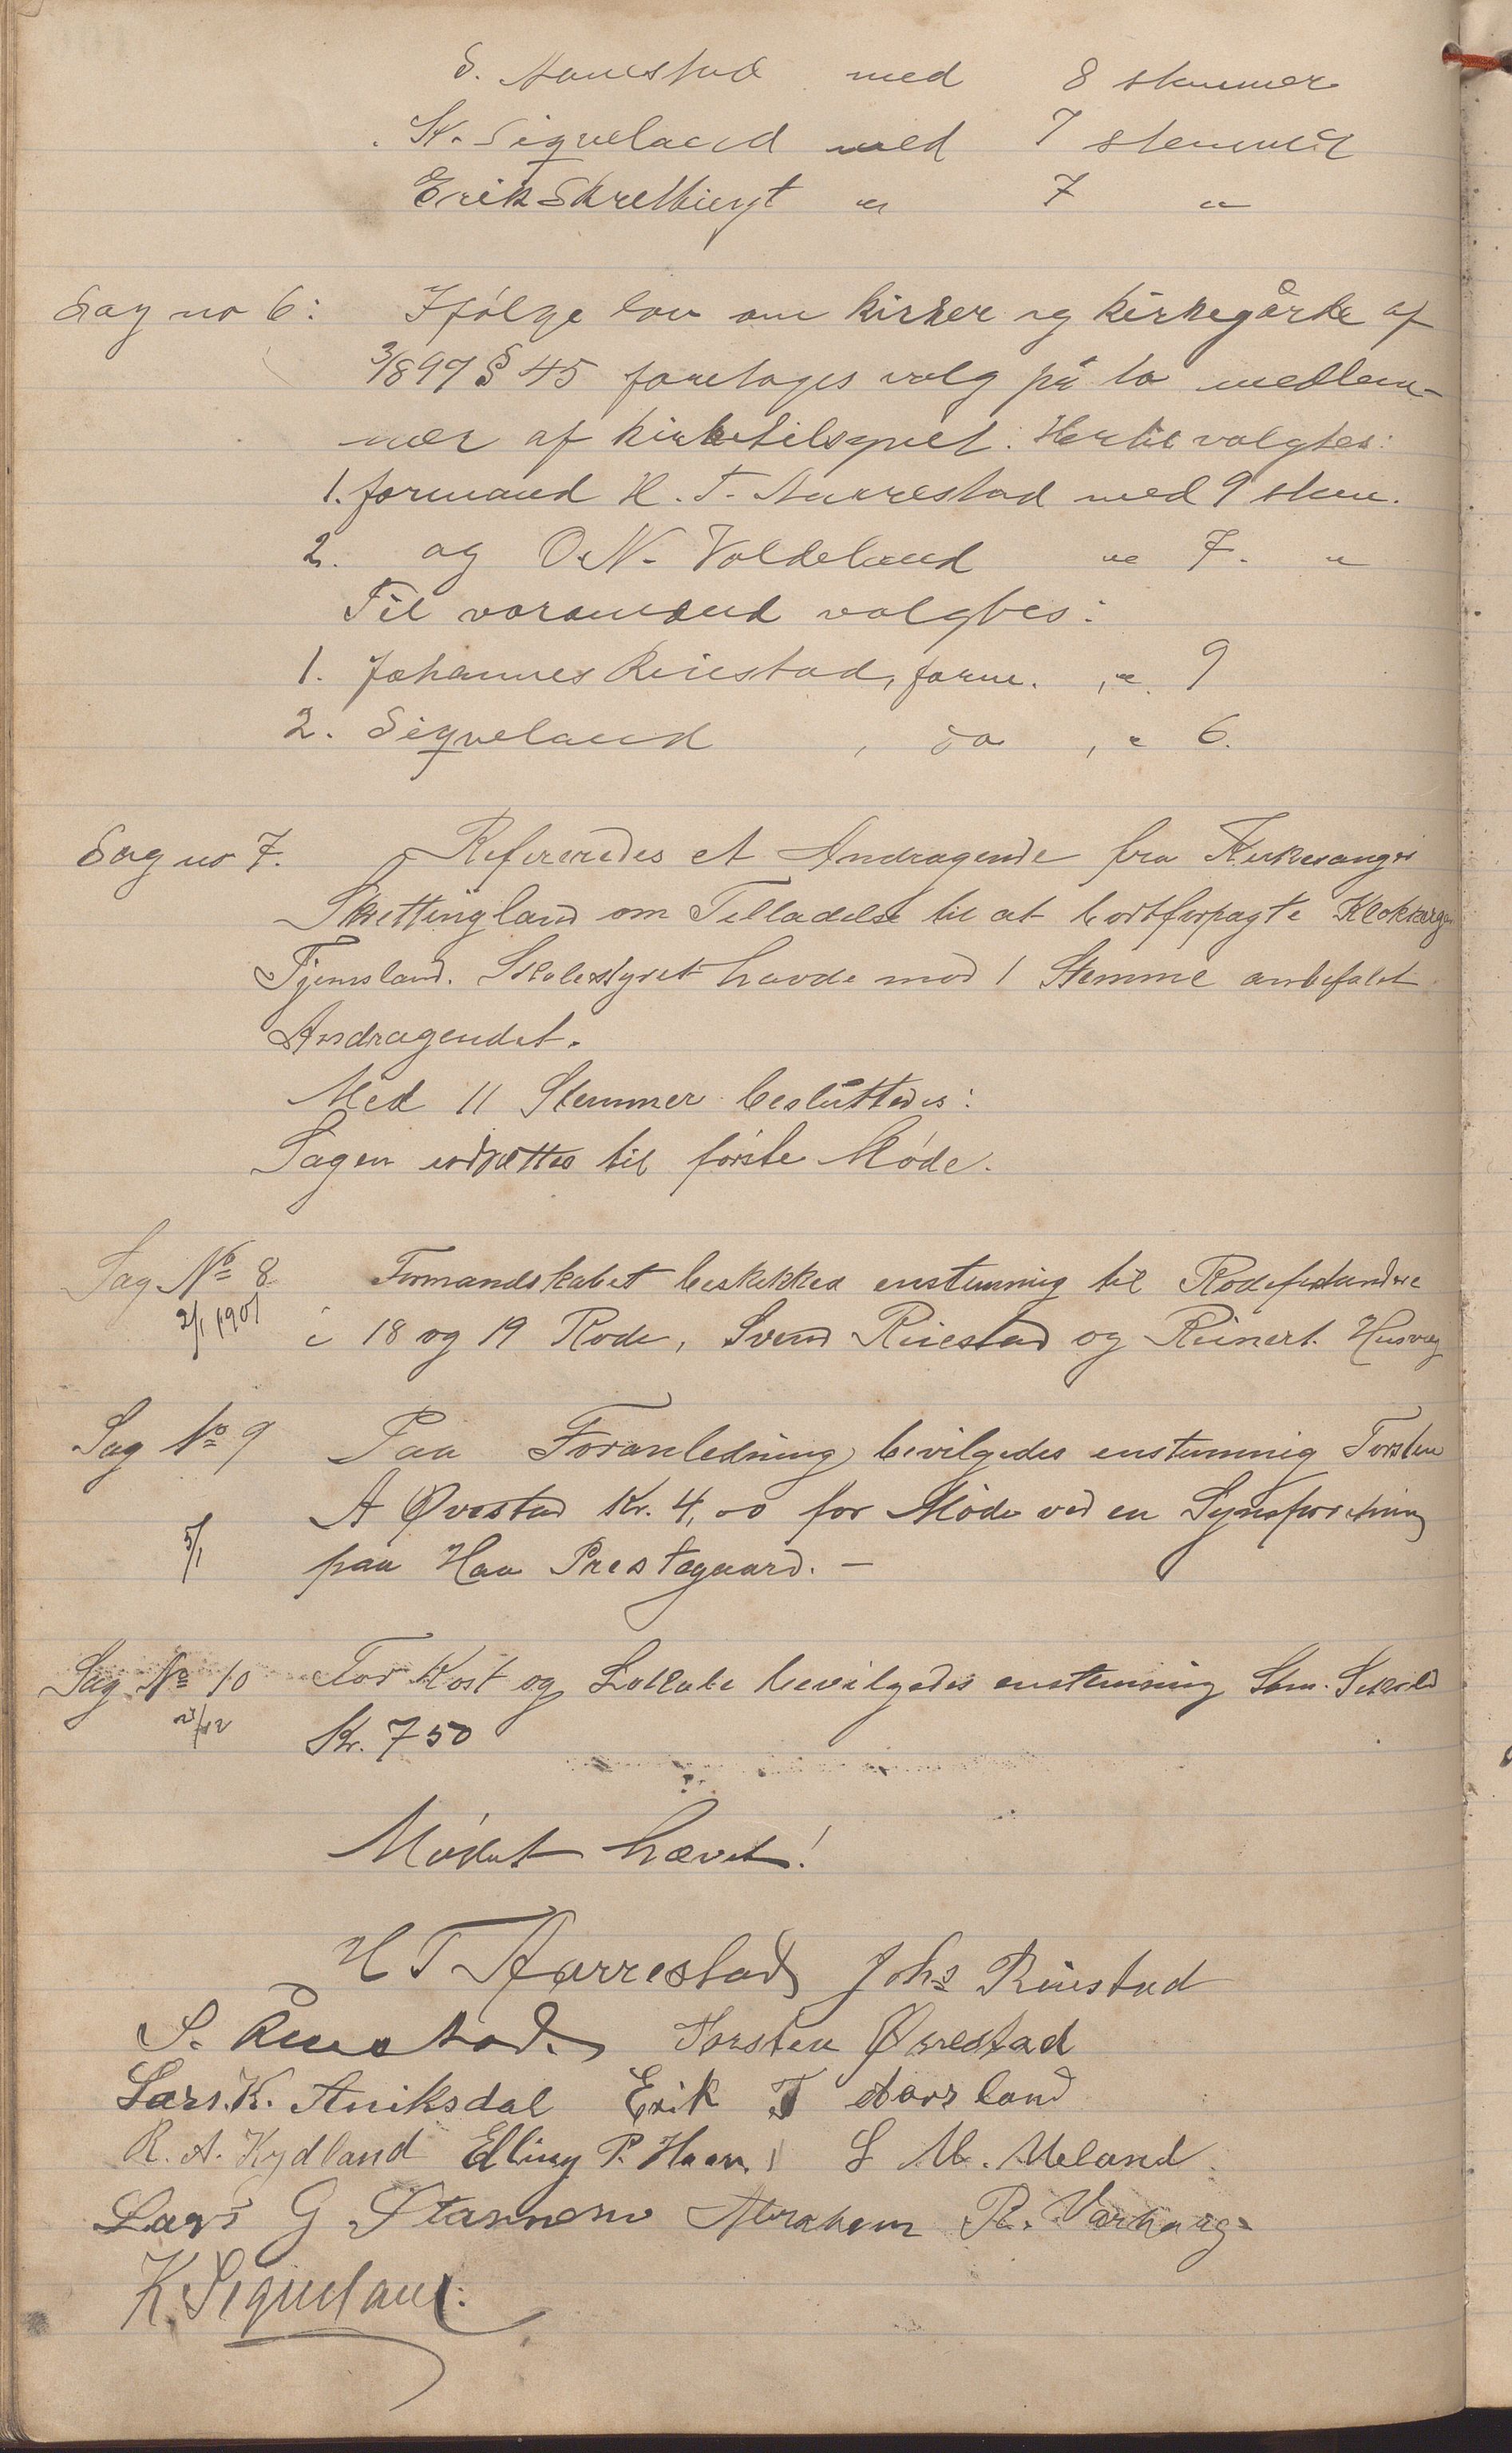 S. Aanestad med 8 stemmer
K. Sigveland med 7 stemmer
Erik " 7 "
Sag no 6: Ifølge lov om kirker og kirkegårde af
3/8 97 § 45 foretoges valg på to medlem-
mer af kirketilsynet. Hertil valgtes:
1. formand H. T. Aarrestad med 9 stem.
2. og O. N. Voldeland " 7. "
Til varamænd valgtes:
1. Johannes Riiestad, form. " 9
2. Sigveland , do , " 6.
Sag no 7. Refereredes et Andragende fra Kirkesanger
Skrettingland om Tilladelse til at bortforpagte Klokkerg
Tjemsland. Skolestyret havde mod 1 Stemme anbefalet
Andragendet.
Med 11 Stemmer besluttedes:
Sagen udsættes til første Møde.
Sag No 8 Formandskabet beskikked enstemmig til Rodeforstandere
2/1 1901 i 18 og 19 Rode, Svend Riiestad og Reinert Husveg
Sag No 9 Paa Foranledning bevilgedes enstemmig Torsten
A Øvestad Kr. 4,00 for Møde ved en Synsforretning
5/1 paa Haa Prestegaard. —
Sag No 10 For Kost og Lokale bevilgedes enstemmig Sem.
Kr. 7 50
Mødet hævet!
H T Aarrestad Johs Riiestad
S. Riiestad. Torsten Øvrestad
Lars. K. Aniksdal Erik T Aarsland
R. A. Kydland Elling P. Haar L M. Meland
Lars G Stavnem Abraham R. Varhaug
K. Sigveland.